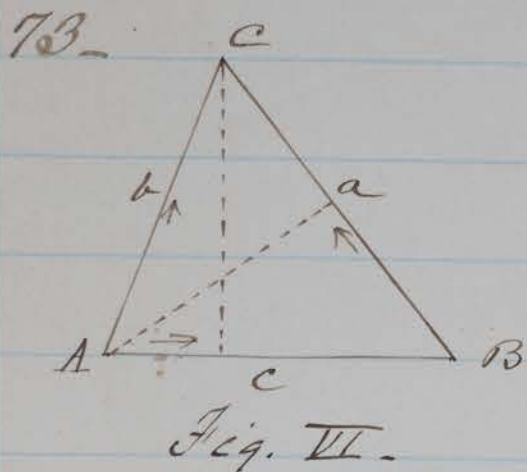 73-
C
b
a
A
B
c
Fig. VI-